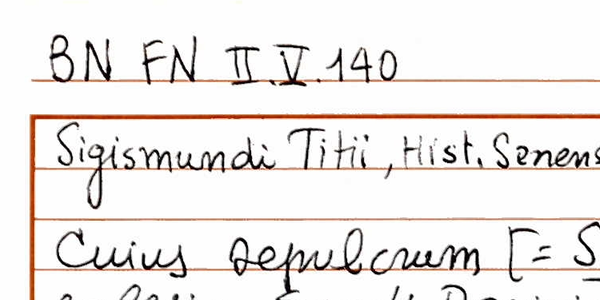 BN FN II.V.140
Sigismundi Titii, Hist. Senens
Cuius sepulcrum [= S